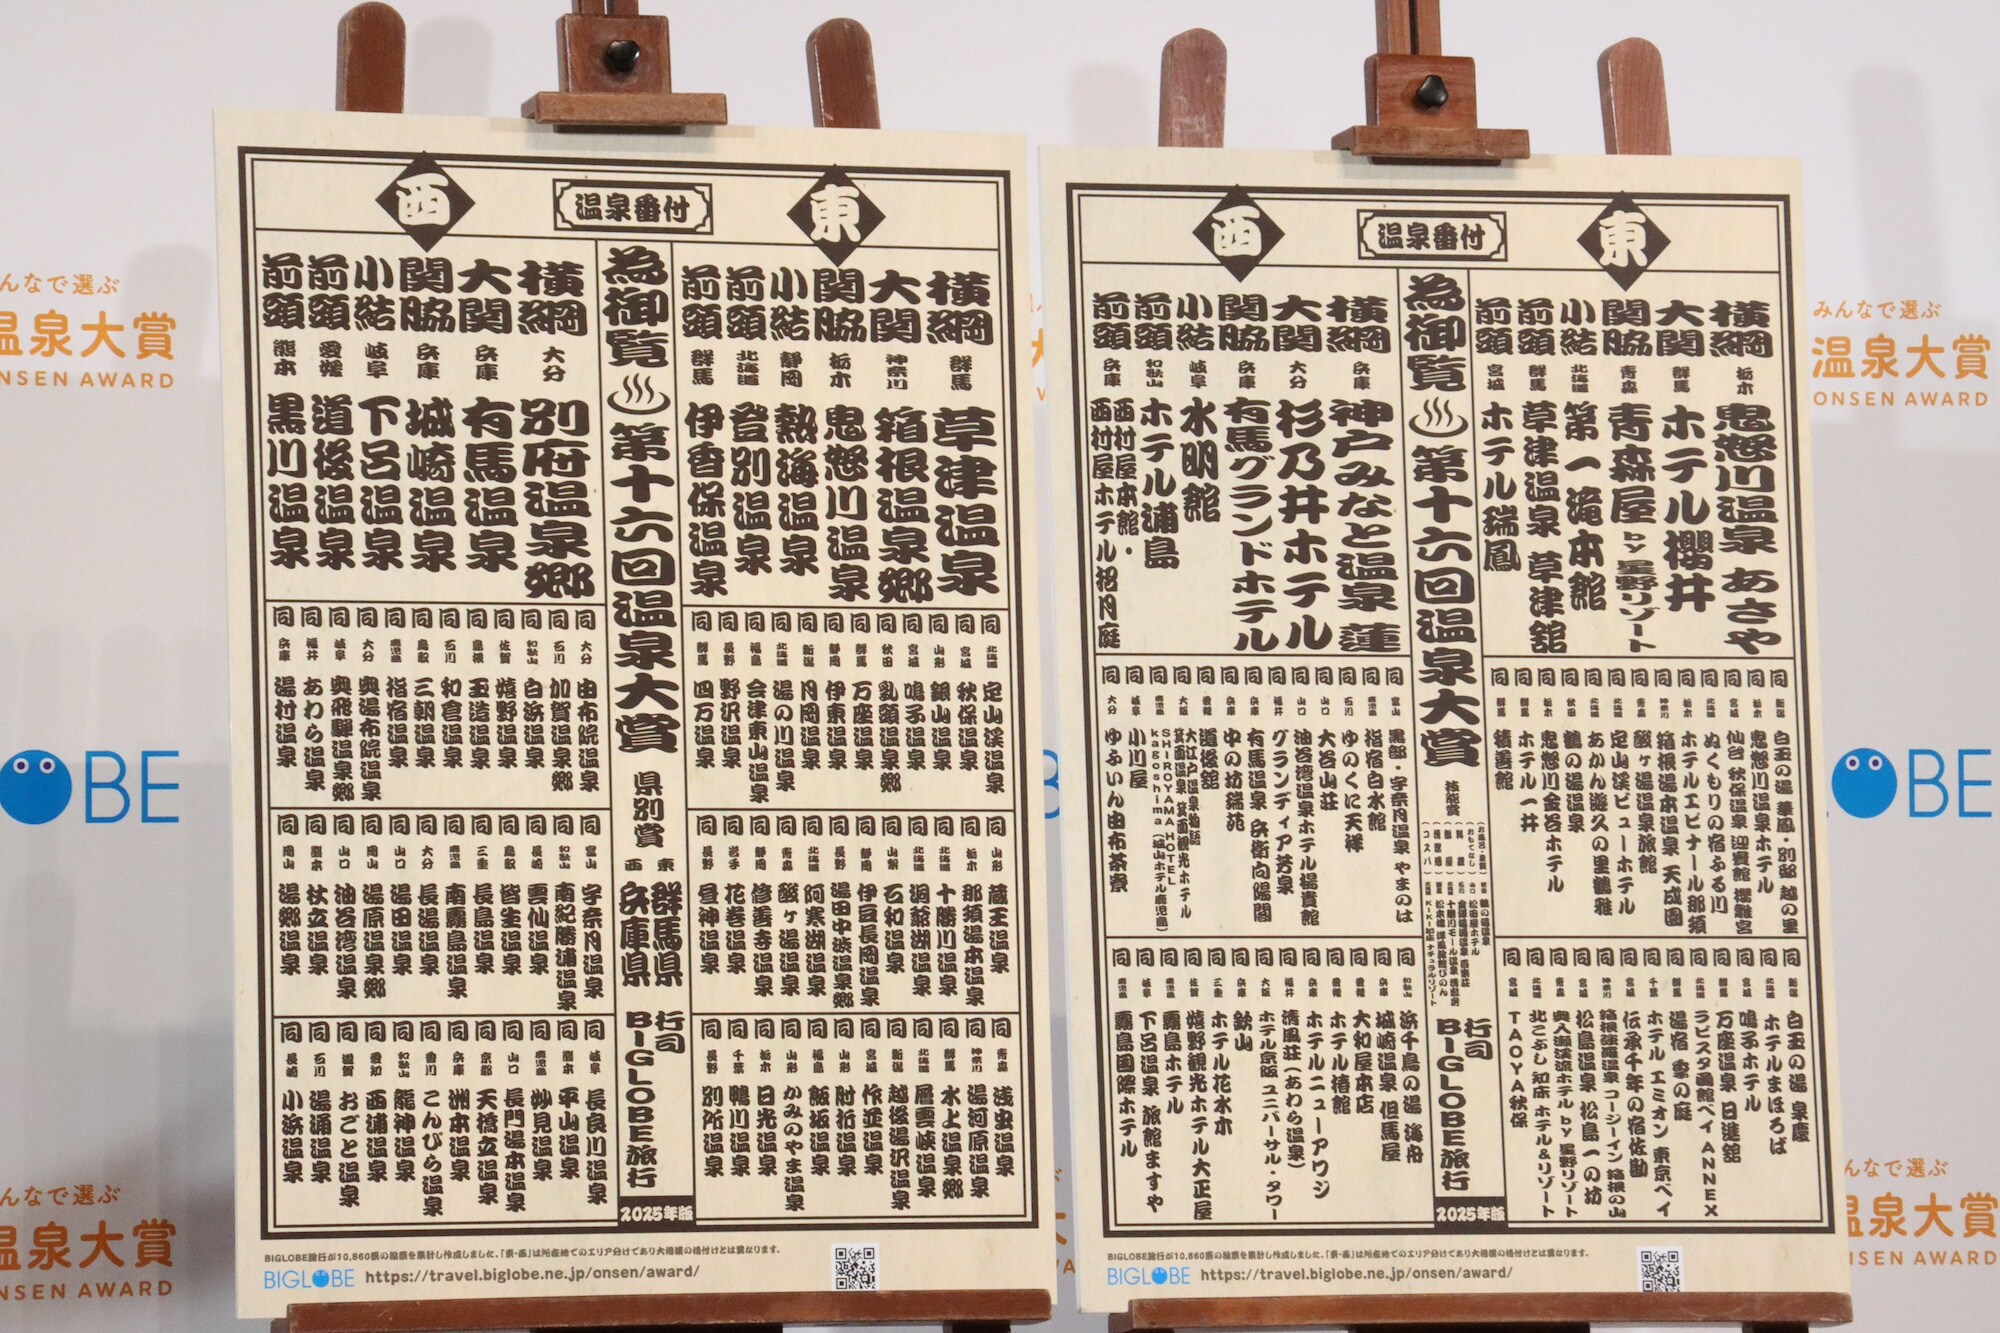 みんなで選ぶ
温泉大賞
ONSEN AWARD
BIGLOBE
温泉番付
東
西
為御覧♨第十六回温泉大賞
県別賞
東 群馬県
西 兵庫県
行司
BIGLOBE旅行
2025年版
横綱 群馬 草津温泉
大関 神奈川 箱根温泉郷
関脇 栃木 鬼怒川温泉
小結 静岡 熱海温泉
前頭 北海道 登別温泉
前頭 群馬 伊香保温泉
同 北海道 定山渓温泉
同 宮城 秋保温泉
同 山形 銀山温泉
同 宮城 鳴子温泉
同 秋田 乳頭温泉郷
同 群馬 万座温泉
同 静岡 伊東温泉
同 新潟 月岡温泉
同 北海道 湯の川温泉
同 福島 会津東山温泉
同 長野 野沢温泉
同 群馬 四万温泉
同 山形 蔵王温泉
同 栃木 那須湯本温泉
同 北海道 十勝川温泉
同 北海道 洞爺湖温泉
同 山梨 石和温泉
同 静岡 伊豆長岡温泉
同 長野 湯田中渋温泉郷
同 北海道 阿寒湖温泉
同 青森 酸ヶ湯温泉
同 静岡 修善寺温泉
同 岩手 花巻温泉
同 長野 昼神温泉
同 青森 浅虫温泉
同 神奈川 湯河原温泉
同 群馬 水上温泉郷
同 北海道 層雲峡温泉
同 新潟 越後湯沢温泉
同 宮城 作並温泉
同 山形 肘折温泉
同 福島 飯坂温泉
同 山形 かみのやま温泉
同 栃木 日光温泉
同 千葉 鴨川温泉
同 長野 別所温泉
横綱 大分 別府温泉郷
大関 兵庫 有馬温泉
関脇 兵庫 城崎温泉
小結 岐阜 下呂温泉
前頭 愛媛 道後温泉
前頭 熊本 黒川温泉
同 大分 由布院温泉
同 石川 加賀温泉郷
同 和歌山 白浜温泉
同 佐賀 嬉野温泉
同 島根 玉造温泉
同 石川 和倉温泉
同 鳥取 三朝温泉
同 鹿児島 指宿温泉
同 大分 奥湯布院温泉
同 岐阜 奥飛騨温泉郷
同 福井 あわら温泉
同 兵庫 湯村温泉
同 富山 宇奈月温泉
同 和歌山 南紀勝浦温泉
同 長崎 雲仙温泉
同 鳥取 皆生温泉
同 三重 長島温泉
同 鹿児島 南霧島温泉
同 大分 長湯温泉
同 山口 湯田温泉
同 岡山 湯原温泉郷
同 山口 油谷湾温泉
同 熊本 杖立温泉
同 岡山 湯郷温泉
同 岐阜 長良川温泉
同 熊本 平山温泉
同 鹿児島 妙見温泉
同 山口 長門湯本温泉
同 京都 天橋立温泉
同 兵庫 洲本温泉
同 香川 こんぴら温泉
同 和歌山 龍神温泉
同 愛知 西浦温泉
同 滋賀 おごと温泉
同 石川 湯涌温泉
同 長崎 小浜温泉
BIGLOBE旅行が10,860票の投票を集計し作成しました。「東・西」は所在地でのエリア分けであり大相撲の格付けとは異なります。
BIGLOBE https://travel.biglobe.ne.jp/onsen/award/
温泉番付
東
西
為御覧♨第十六回温泉大賞
技能賞
行司
BIGLOBE旅行
2025年版
横綱 栃木 鬼怒川温泉 あさや
大関 群馬 ホテル櫻井
関脇 青森 青森屋 by 星野リゾート
小結 北海道 第一滝本館
前頭 群馬 草津温泉 草津館
前頭 宮城 ホテル瑞鳳
同 新潟 白玉の湯 華鳳・別邸 越の里
同 栃木 鬼怒川温泉ホテル
同 宮城 仙台 秋保温泉 迎賓館 櫻離宮
同 北海道 ぬくもりの宿ふる川
同 栃木 ホテルエピナール那須
同 神奈川 箱根湯本温泉 天成園
同 青森 酸ヶ湯温泉旅館
同 北海道 定山渓ビューホテル
同 北海道 あかん遊久の里鶴雅
同 秋田 鶴の湯温泉
同 栃木 鬼怒川金谷ホテル
同 群馬 ホテル一井
同 群馬 積善館
同 新潟 白玉の湯 泉慶
同 北海道 ホテルまほろば
同 宮城 鳴子ホテル
同 群馬 万座温泉 日進舘
同 北海道 ラビスタ函館ベイ ANNEX
同 群馬 湯宿 季の庭
同 千葉 ホテル エミオン 東京ベイ
同 宮城 伝承千年の宿佐勘
同 神奈川 箱根強羅温泉 コージーイン 箱根の山
同 宮城 松島温泉 松島一の坊
同 青森 奥入瀬渓流ホテル by 星野リゾート
同 北海道 北こぶし 知床 ホテル&リゾート
同 宮城 TAOYA秋保
横綱 兵庫 神戸みなと温泉 蓮
大関 大分 杉乃井ホテル
関脇 兵庫 有馬グランドホテル
小結 岐阜 水明館
前頭 和歌山 ホテル浦島
前頭 兵庫 西村屋本館・西村屋ホテル招月庭
同 富山 黒部・宇奈月温泉 やまのは
同 鹿児島 指宿白水館
同 石川 ゆのくに天祥
同 山口 大谷山荘
同 山口 油谷湾温泉ホテル楊貴館
同 福井 グランディア芳泉
同 兵庫 有馬温泉 兵衛向陽閣
同 兵庫 中の坊瑞苑
同 愛媛 道後舘
同 大阪 大江戸温泉物語 箕面温泉 箕面観光ホテル
同 鹿児島 SHIROYAMA HOTEL kagoshima(城山ホテル鹿児島)
同 岐阜 小川屋
同 大分 ゆふいん由布茶寮
同 和歌山 浜千鳥の湯 海舟
同 兵庫 城崎温泉 但馬屋
同 愛媛 大和屋本店
同 愛媛 ホテル椿館
同 兵庫 ホテルニューアワジ
同 福井 清風荘(あわら温泉)
同 大阪 ホテル京阪 ユニバーサル・タワー
同 兵庫 欽山
同 三重 ホテル花水木
同 佐賀 嬉野観光ホテル大正屋
同 鹿児島 霧島ホテル
同 岐阜 下呂温泉 旅館ますや
同 鹿児島 霧島国際ホテル
BIGLOBE旅行が10,860票の投票を集計し作成しました。「東・西」は所在地でのエリア分けであり大相撲の格付けとは異なります。
BIGLOBE https://travel.biglobe.ne.jp/onsen/award/
みんなで選ぶ
温泉大賞
ONSEN AWARD